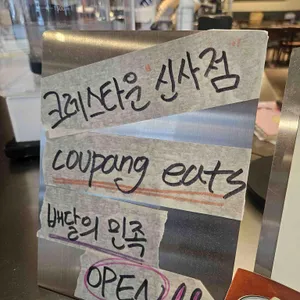 크레스타운 신사점
coupang eats
배달의 민족
OPEN!!